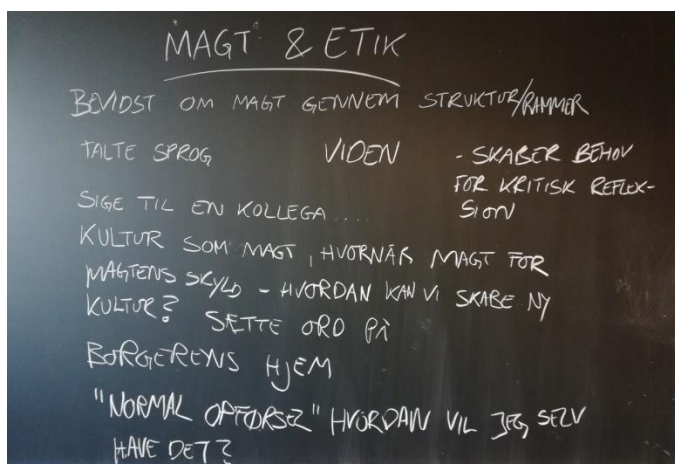 "MAGT" & ETIK
BEVIDST OM MAGT GENNEM STRUKTUR/RAMMER
TALTE SPROG VIDEN - SKABER BEHOV
FOR KRITISK REFLEK-
SION
SIGE TIL EN KOLLEGA....
KULTUR SOM MAGT, HVORNÅR MAGT FOR
MAGTENS SKYLD - HVORDAN KAN VI SKABE NY
KULTUR? SÆTTE ORD PÅ
BORGERENS HJEM
"NORMAL OPFØRSEL" HVORDAN VIL JEG SELV
HAVE DET?